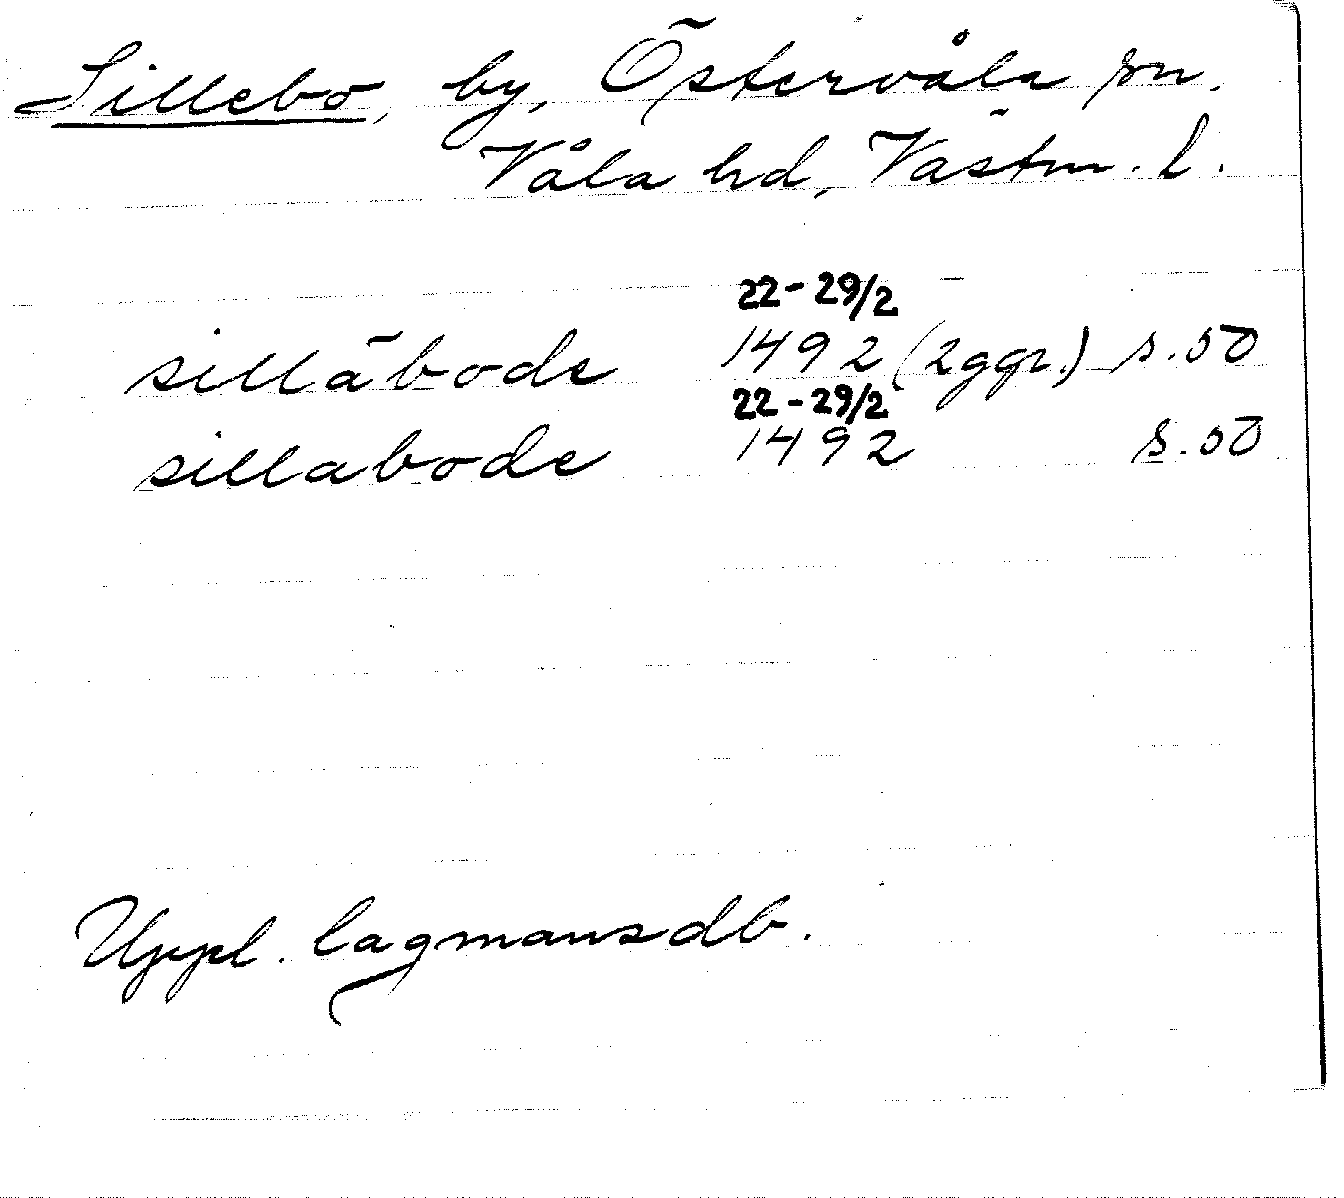 Sillebo, by, Östervåla sn.
Våla hd, Västm. l.
22-29/2
silläbode 1492 (2 ggr.) s. 50
22-29/2
sillabode 1492 s. 50
Uppl. lagmansdb.